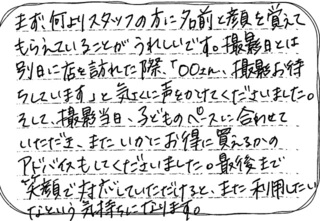 まず、何よりスタッフの方に名前と顔を覚えて
もらえていることがうれしいです。撮影日とは
別日に店を訪れた際、「〇〇さん、撮影お待
ちしています」と気さくに声をかけてくださいました。
そして、撮影当日、子どものペースに合わせて
いただき、またいかにお得に買えるかの
アドバイスもしてくださいました。最後まで
笑顔で対応していただけると、また利用したい
なという気持ちになります。